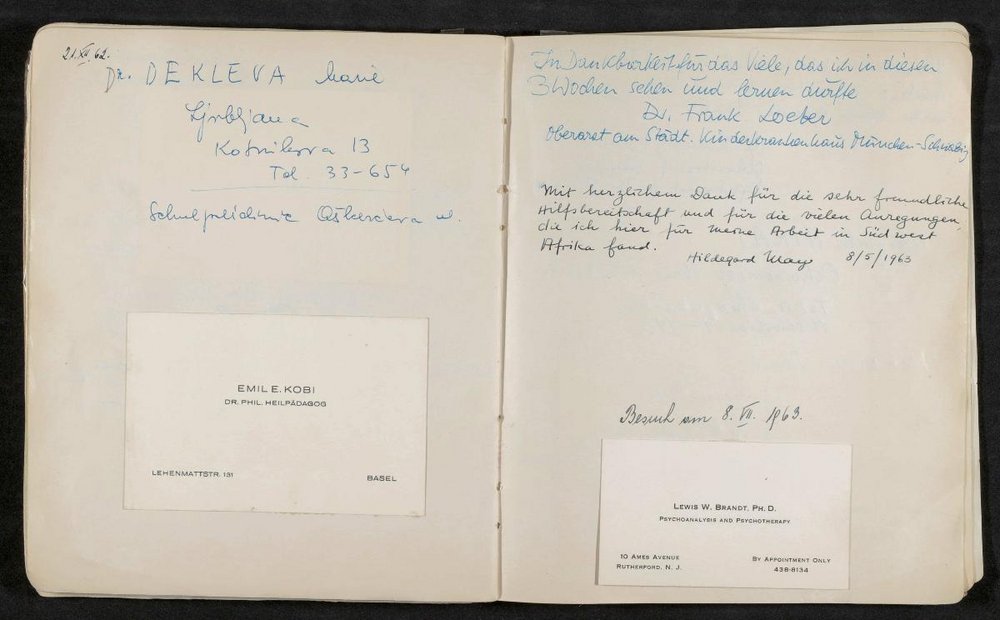 21.XII.62.
Dr. DEKLEVA
Ljubljana
Kotnikova 13
Tel. 33-654
EMIL E. KOBI
DR. PHIL. HEILPÄDAGOG
LEHENMATTSTR. 131
BASEL
In Dankbarkeit für das Viele, das ich in diesen
3 Wochen sehen und lernen durfte
Dr. Frank Loeber
Oberarzt am Städt. Kinderkrankenhaus München-Schwabing
Mit herzlichem Dank für die sehr freundliche
Hilfsbereitschaft und für die vielen Anregungen,
die ich hier für meine Arbeit in Südwest
Afrika fand.
Hildegard 8/5/1963
Besuch am 8. VII. 1963.
LEWIS W. BRANDT, PH. D.
PSYCHOANALYSIS AND PSYCHOTHERAPY
10 AMES AVENUE
RUTHERFORD, N. J.
BY APPOINTMENT ONLY
438-8134